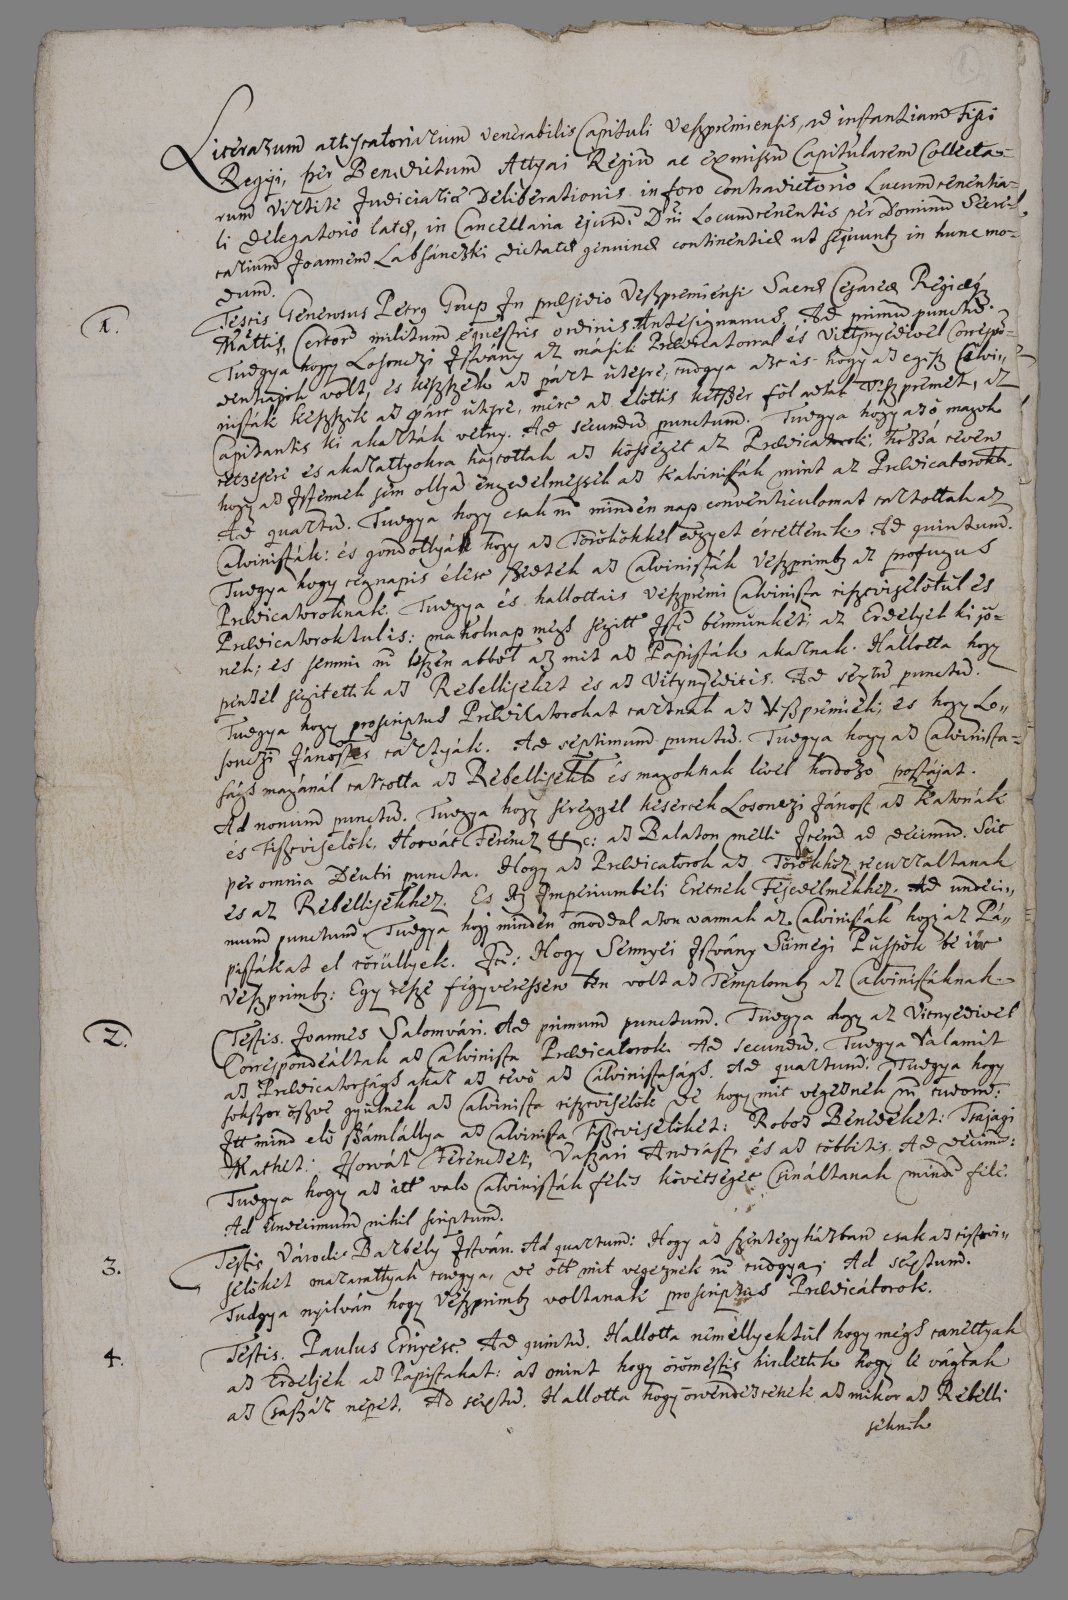 Literarum attestatoriarum venerabilis Capituli Veszpremiensis, ad instantiam Fisci
Regii, per Benedictum Attyai Regium ac exmissum Capitularem Collecta-
rum virtute Judiciariae Deliberationis in foro contradictorio Locumtenentia-
li delegatorio latae, in Cancellaria ejusd. Dni Locumtenentis per Dominum Secre-
tarium Joannem Labsánczki dictatae genuinae continentiae ut sequuntur in hunc mo-
dum.
1. Testis Generosus Petrus Trup In praesidio Veszpremiensi Sacrae Cesareae Regiaeq
Mattis, Certor militum equestris ordinis Antesignanus. Ad primum punctum.
Tudgya hogy Losonczi Istvány az másik Praedicatorral és Vittnyédivel Correspo-
dentiajok volt, és készek az párt ütésre, tudgya azt is hogy az egisz Calvi-
nisták készek az párt ütésre, mert az előttis kétszer föl adták Veszprémet, az
apitantis ki akarták vetny. Ad secundum punctum. Tudgya hogy azö magok
tetzésére és akarattyokra hajtottak az kösséget az Praedicatorok; hozzá tévén
hogy az Istennek sem ollyá engedelmessek az Kalvinisták mint az Praedicatorokk.
Ad quartum. Tudgya hogy csak nē minden nap conventiculomat tartottak az
Calvinisták: és gondollyák hogy az Törökökkel edgyet értettenek. Ad quintum.
Tudgya hogy tegnapis élést szedtek az Calvinisták Veszprimbe az profugus
Praedicatoroknak. Tudgya és hallottais Veszpremi Calvinista tisztviselőtül és
Praedicatoroktulis: maholnap megs segitt Isten bennünket: az Erdelyek ki jö-
nek; és semmi nē leszen abbol az mit az Papisták akarnak. Hallotta hogy
penzel segitettik az Rebelliseket és az Vitnyédiis. Ad sextum punctum.
Tudgya hogy proscriptus Praedicatorokat tartnak az Veszpremiek; és hogy Lo-
sonczi Jánostis tartyák. Ad septimum punctum. Tudgya hogy az Calvinista-
ságs magánál tartotta az Rebellisekk és magoknak level hordozo postájat.
Ad nonum punctum. Tudgya hogy sereggel késérték Losonczi Jánost az Katonák
és Tisztviselök, Horvát Ferencz &c: az Balaton mellé Item ad decimum. Scit
per omnia Deutri puncta. Hogy az Praedicatorok az Törökhöz recurraltanak
és az Rebellisekhez. Es Az Imperiumbéli Eretnek Fejedelmekhez. Ad undeci-
mum punctum. Tudgya hogy minden moddal azon vannak az Calvinisták hogy az Pá-
pistákat el törüllyék. Itē: Hogy Sennyei Istvány Sümegi Püspök be jöt
Veszprimbe: Egy része fegyveressen ben volt az Templomba az Calvinistáknak.
2. Testis. Joannes Salomvári. Ad primum punctum. Tudgya hogy az Vitnyédivel
Correspondeáltak az Calvinista Praedicatorok. Ad secundum. Tudgya Valamit
az Praedicatorságs akar az tévö az Calvinistaságs. Ad quartum. Tudgya hogy
sokszor öszve gyülnek az Calvinista tisztviselök de hogy mit végeznek nē tudom:
Itt mind elö számlállya az Calvinista Tisztviselöket: Roboz Benedeket: Tsajági
Mathet: Horvát Ferenczet, Vaszári Andrást, és az többitis. Ad decimum:
Tudgya hogy az itt valo Calvinisták felis követséget csináltanak minden felé.
Ad Undecimum nihil scriptum.
3. Testis Városdi Barbély Istvan. Ad quartum: Hogy az szentegyházban csak az tisztvi-
selöket marasztyák tudgya, de ott mit végeznek nē tudgya; Ad sextum.
Tudgya nyilván hogy Veszprimbe voltanak proscriptus Praedicátorok.
4. Testis. Paulus Ernyesc. Ad quintum. Hallotta némellyektül hogy megs tanéttyák
az Erdeljek az Papistakat: az mint hogy örömestis hirdettek hogy le vágták
az Császár népét. Ad sextum. Hallotta hogy örvendeztenek az mikor az Rebelli
seknek